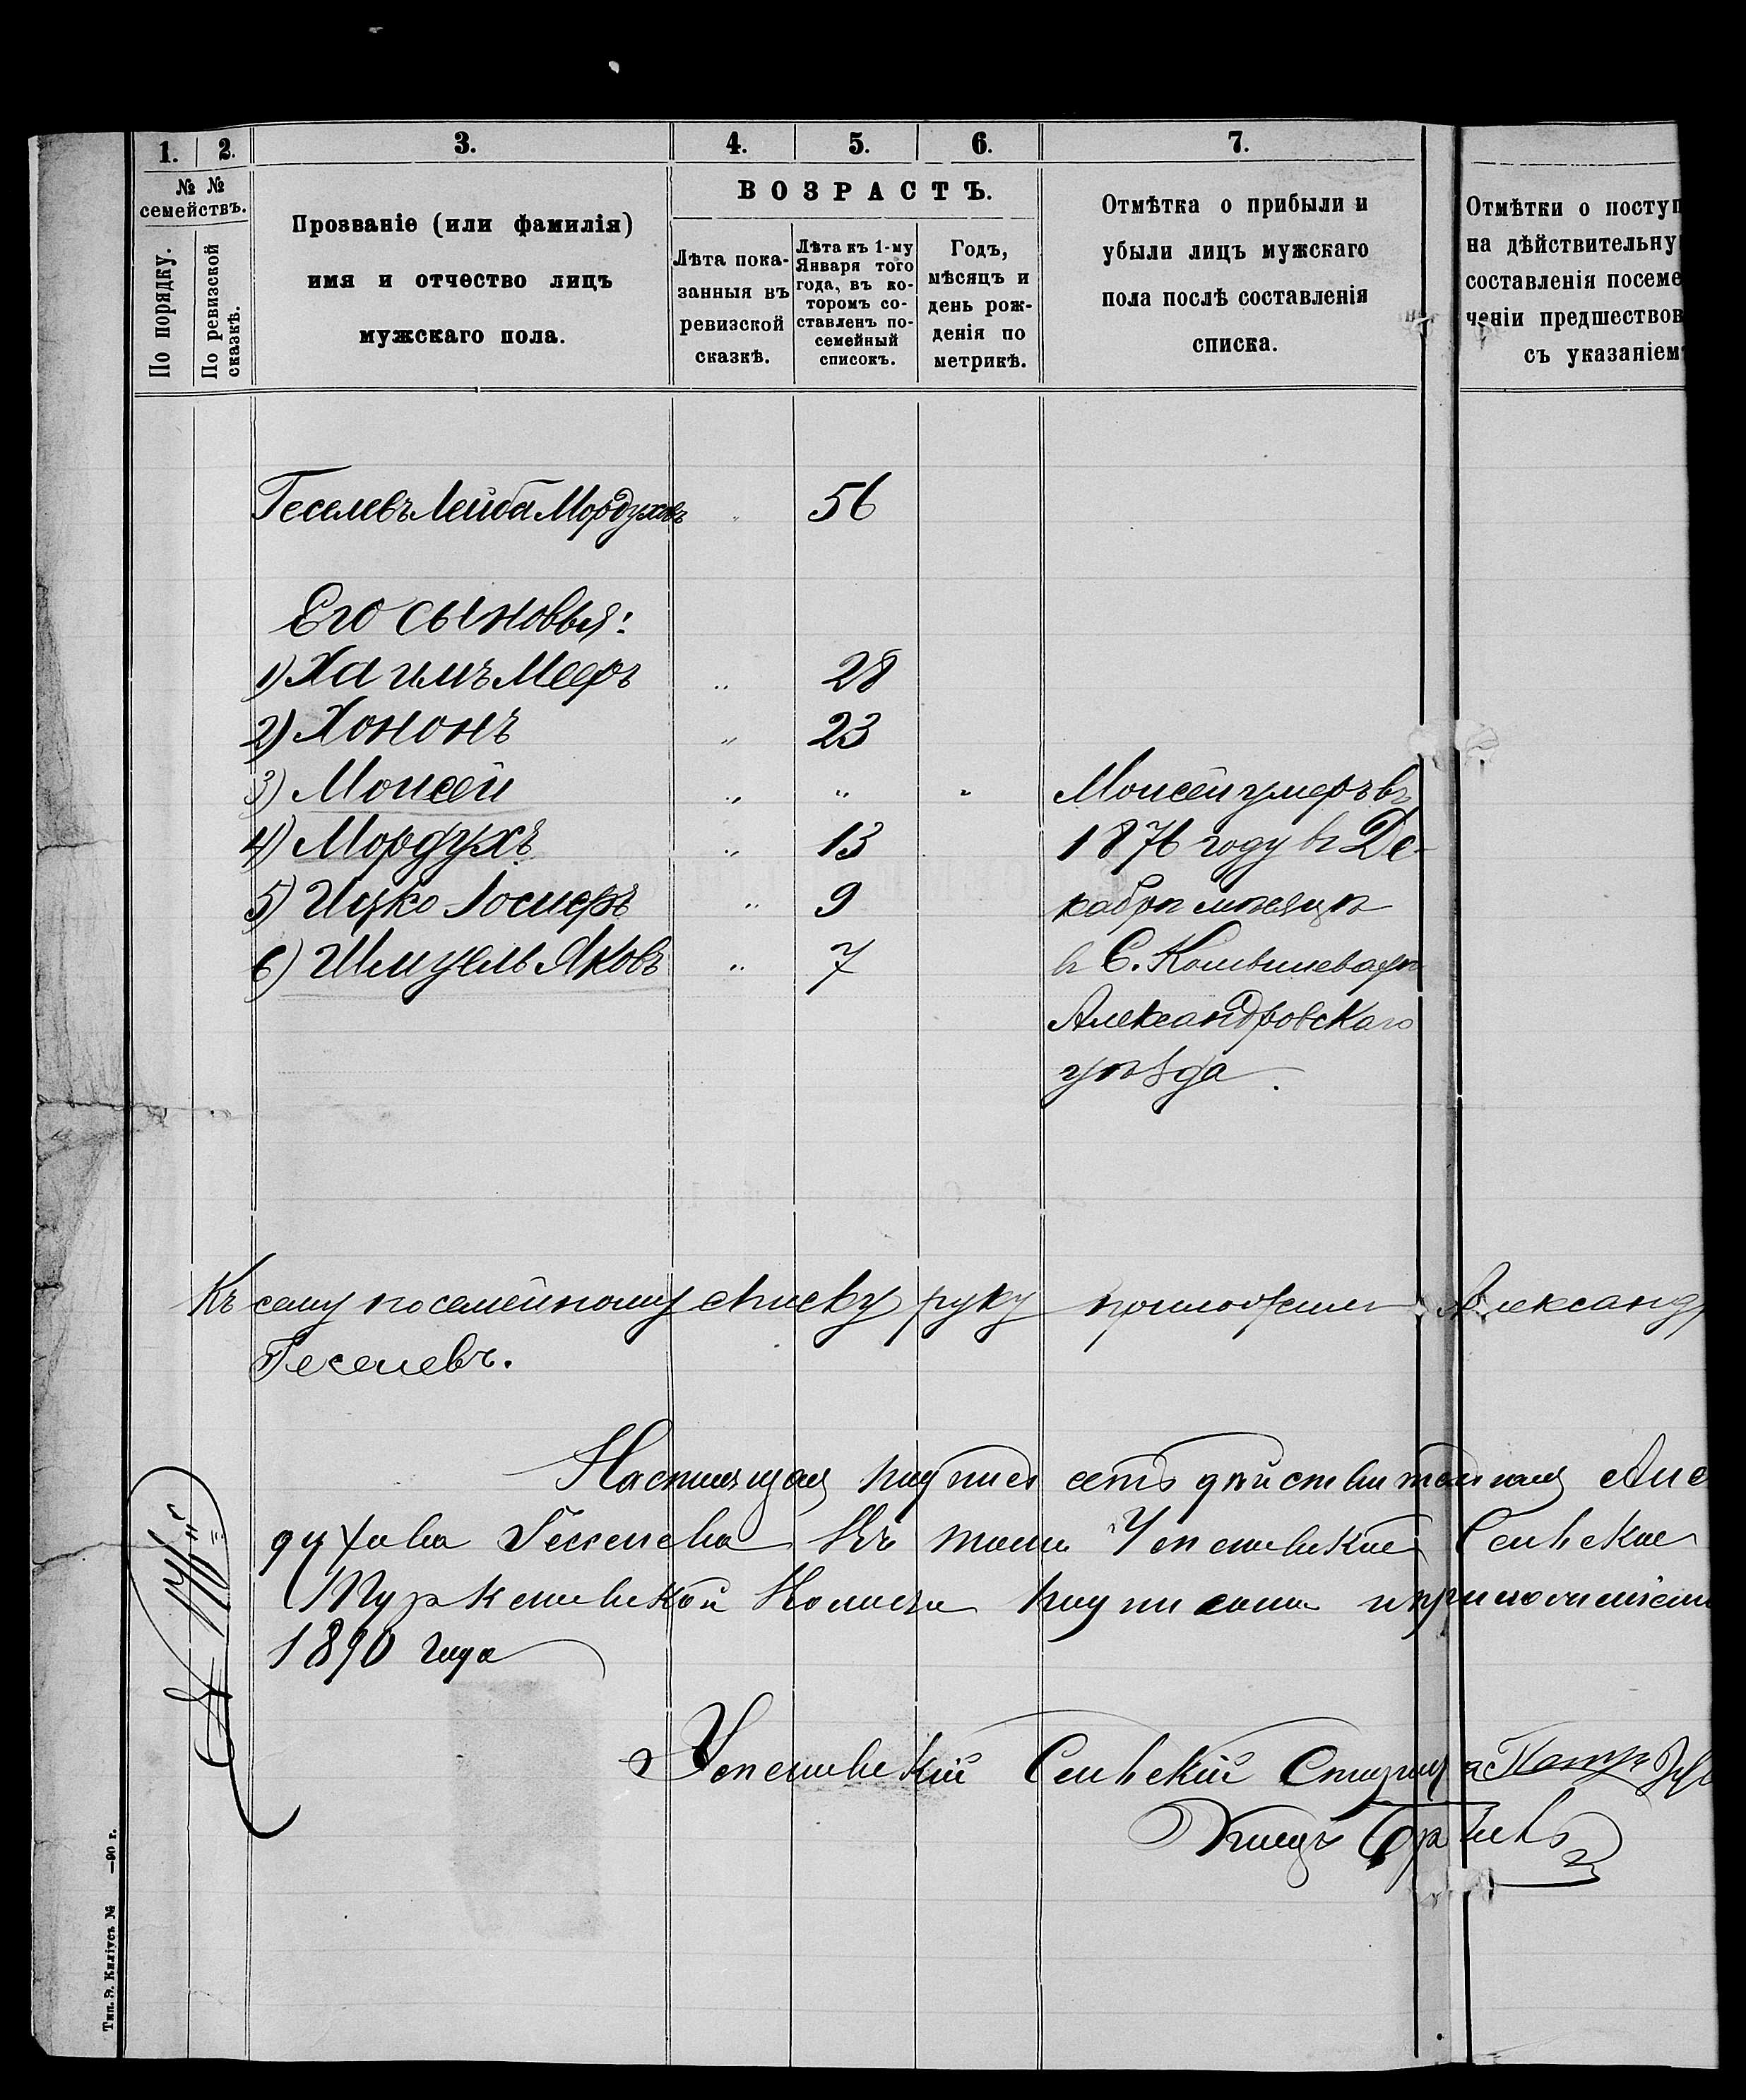 1. 2. 3. 4. 5. 6. 7.
№ №
семействъ.
По порядку.
По ревизской
сказкѣ.
Прозваніе (или фамилія)
имя и отчество лицъ
мужскаго пола.
ВОЗРАСТЪ.
Лѣта пока-
занныя въ
ревизской
сказкѣ.
Лѣта къ 1-му
Января того
года, въ ко-
торомъ со-
ставленъ по-
семейный
списокъ.
Годъ,
мѣсяцъ и
день рож-
денія по
метрикѣ.
Отмѣтка о прибыли и
убыли лицъ мужскаго
пола послѣ составленія
списка.
Отмѣтки о поступ
на дѣйствительну
составленія посеме
ченіи предшествов
съ указаніем
Геселевъ Лейба Мордуховъ " 56
Его сыновья:
1) Хаимъ Мееръ " 28
2) Хононъ " 23
3) Моисей " " " Моисей умеръ въ
4) Мордухъ " 13 1876 году въ Де-
5) Ицко Іосиеръ " 9 кабрѣ мѣсяцѣ
6) Шмуель Яковъ " 7 въ С.
Александровскаго
уѣзда.
Къ сему посемейному списку руку приложилъ Александ
Геселевъ.
Настоящая подпись есть дѣйствительная
духова Геселева въ томъ Успеновское Сельское
Туркеновской Волости подписомъ и приложеніем
1890 года
Успеновскій Сельскій Староста
Тип. Э. Киліусъ № —90 г.